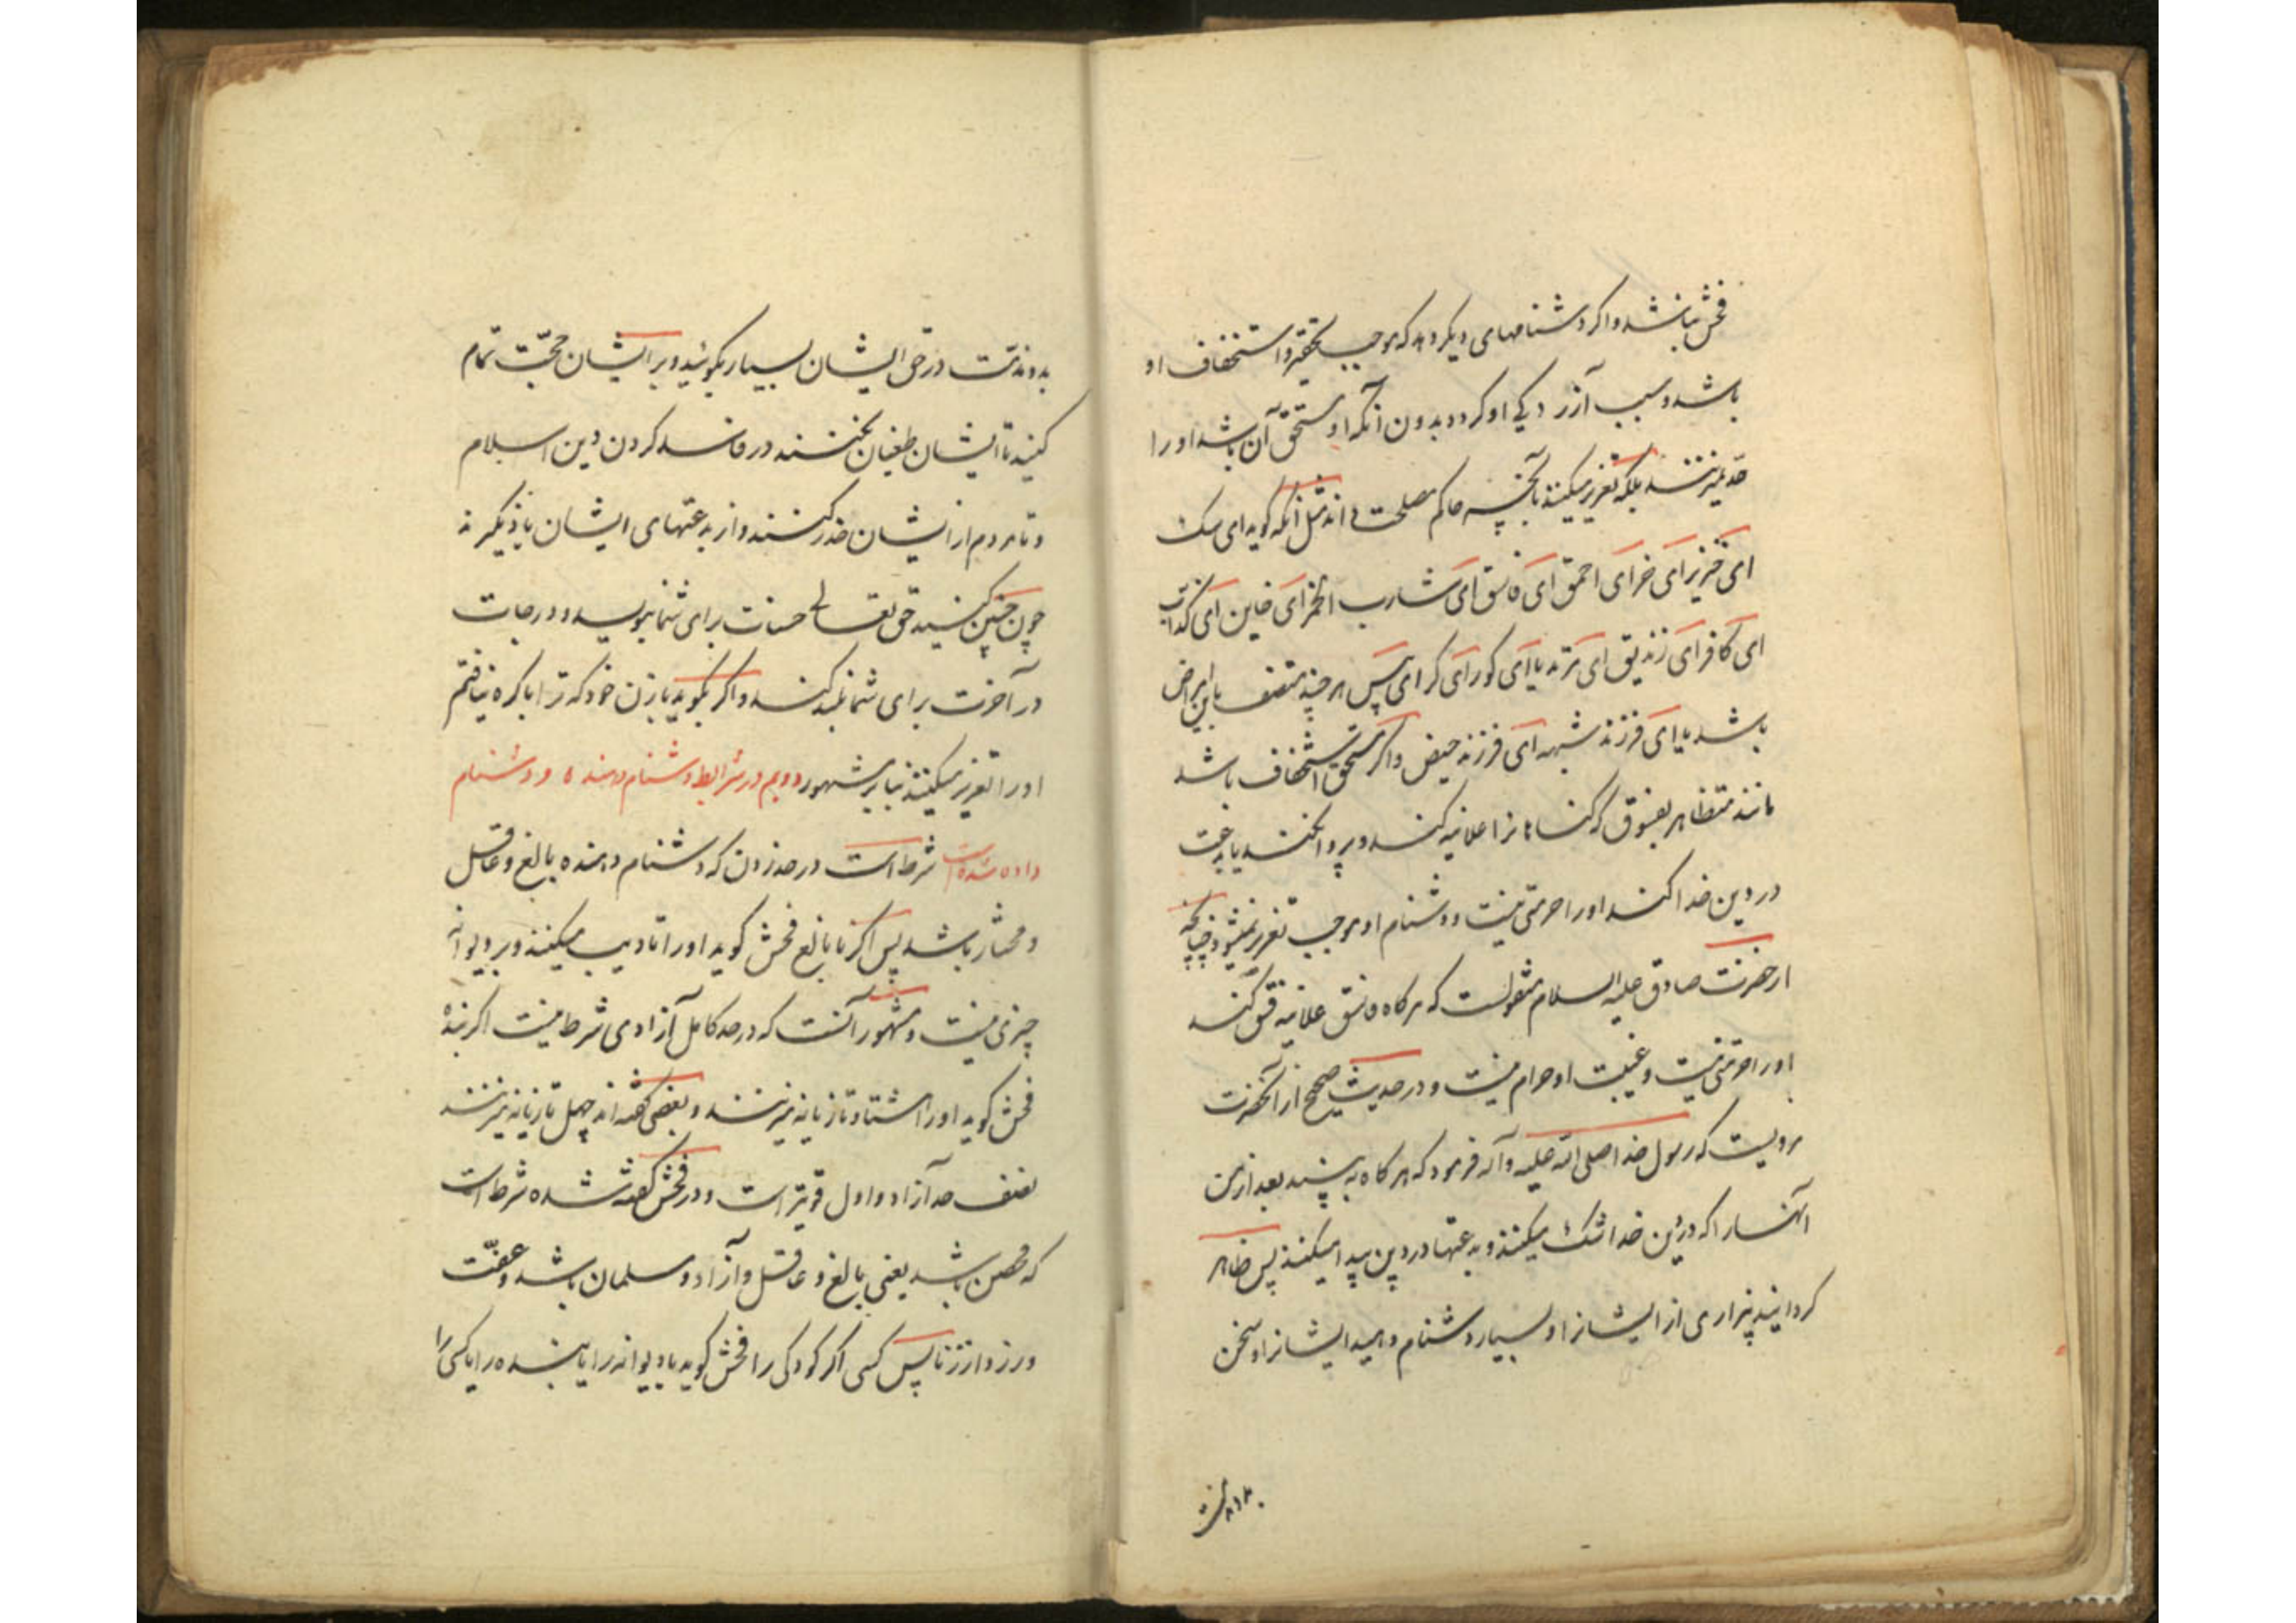 فحش نباشد و اگر دشنامهای دیگر دهد که موجب تحقیر و استخفاف او
باشد و سبب آزردکی او کردد بدون آنکه او مستحق آن باشد او را
حد نمیزنند بلکه تعزیر میکنند بآنچه حاکم مصلحت داند مثل آنکه کوید ای سک
ای خنزیر ای خر ای احمق ای فاسق ای شارب الخمر ای خاین ای کذاب
ای کافر ای زندیق ای مرتد یا ای کور ای کر ای پیس هر چند متصف باین امراض
باشد یا ای فرزند شبهه ای فرزند حیض و اکر مستحق استخفاف باشد
مانند متظاهر بفسوق که کناهانرا علانیه کند و پروا نکند یا بدعت
در دین خدا کند او را حرمتی نیست و دشنام او موجب تعزیر نمیشود چنانچه
از حضرت صادق علیه السلام منقولست که هرکاه فاسق علانیه فسق کند
او را حرمتی نیست و غیبت او حرام نیست و در حدیث صحیح از آنحضرت
مرویست که رسول خدا صلی الله علیه و آله فرمود که هرکاه به بینید بعد از من
آنها را که در دین خدا شک میکنند و بدعتها در دین پیدا میکنند پس ظاهر
کردانید بیزاری از ایشانرا و بسیار دشنام دهید ایشانرا و سخن
بد و مذمت در حق ایشان بسیار بکوئید و بر ایشان حجّت تمام
کنید تا ایشان طغیان نکنند در فاسد کردن دین اسلام
و تا مردم از ایشان حذر کنند و از بدعتهای ایشان یاد نکیرند
چون چنین کنید حق تعالی حسنات برای شما بنویسد و درجات
در آخرت برای شما بلند کند و اکر بکوید با زن خود که ترا باکره نیافتم
او را تعزیر میکنند بنابر مشهور دویم در شرایط دشنام دهنده و دشنام
داده شده است شرط است در حد زدن که دشنام دهنده بالغ و عاقل
و مختار باشد پس اکر نابالغ فحش کوید او را تادیب میکنند و بر دیوانه
چیزی نیست و مشهور آنست که در حد کامل آزادی شرط نیست اکر بنده
فحش کوید او را هشتاد تازیانه میزنند و بعضی کفته اند چهل تازیانه میزنند
نصف حد آزاد و اول قویتر است و در فحش کفته شده شرط است
که محصن باشد یعنی بالغ و عاقل و آزاد و مسلمان باشد و عفت
ورزد از زنا پس کسی اکر کودکی را فحش کوید یا دیوانه را یا بنده را یا کسی را